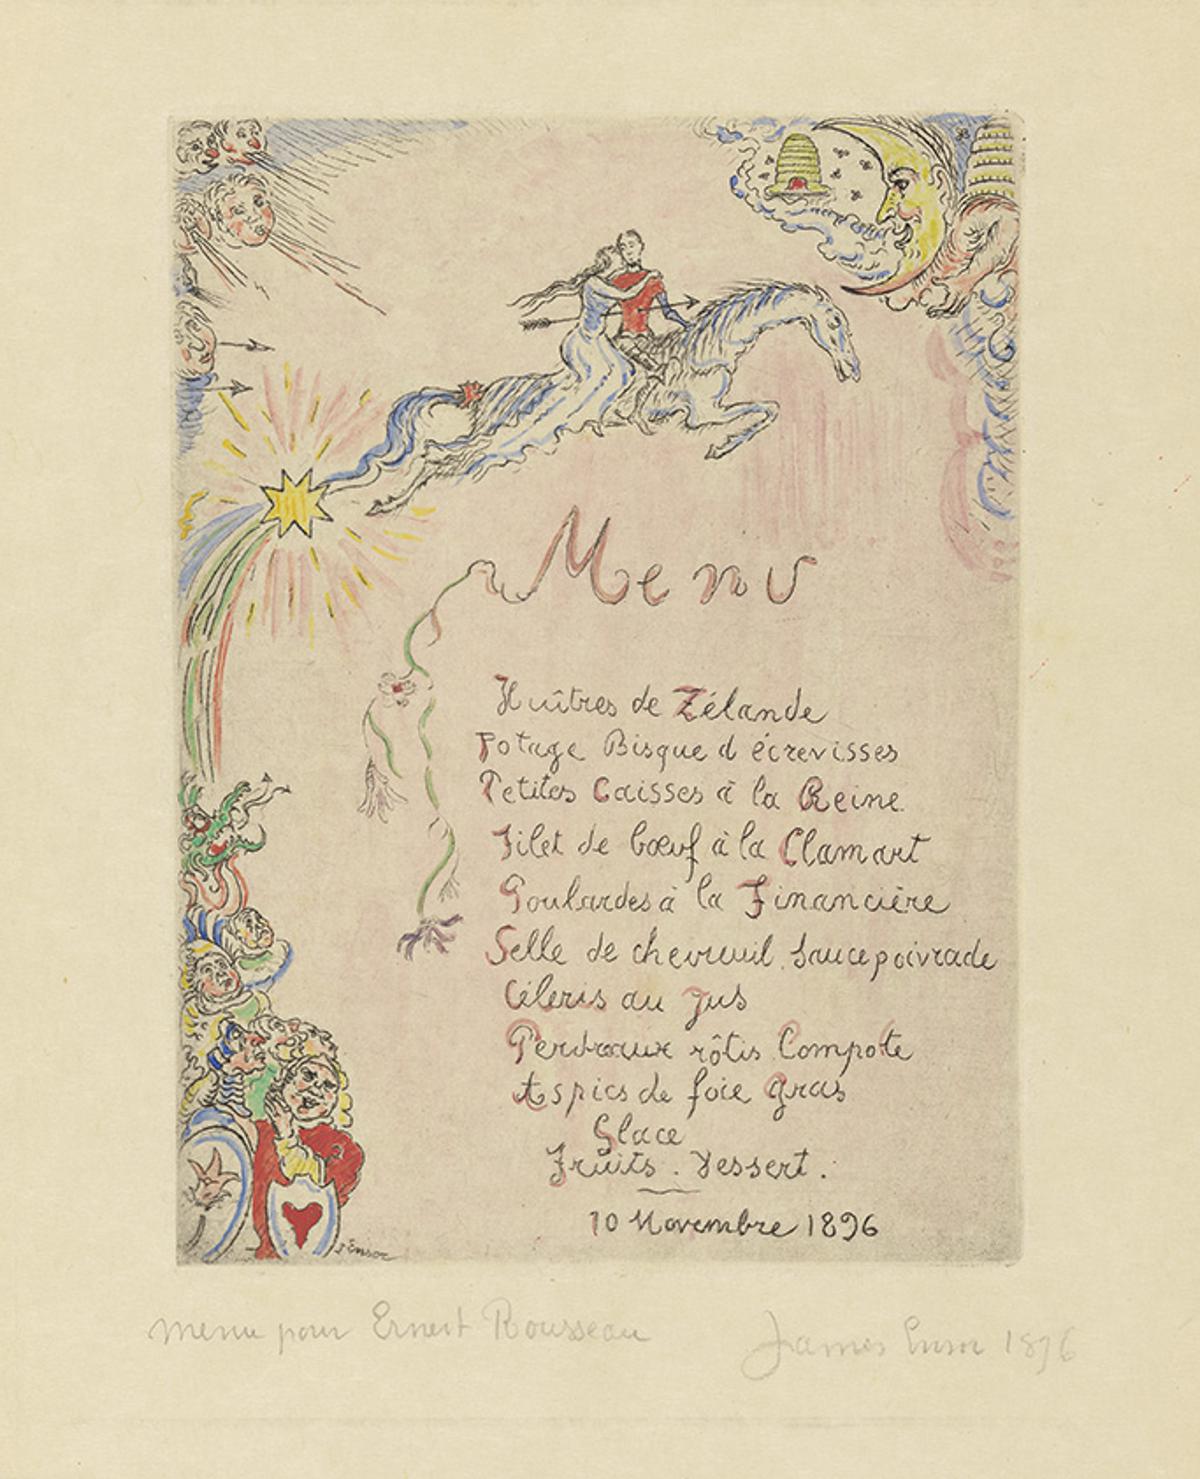 Menu
Huîtres de Zélande
Potage Bisque d écrevisses
Petites Caisses à la Reine
Filet de bœuf à la Clamart
Poulardes à la Financière
Selle de chevreuil sauce poivrade
Céleris au jus
Perdreaux rôtis Compote
Aspics de foie gras
Glace
Fruits. Dessert.
10 Novembre 1896
J Ensor
menu pour Ernest Rousseau
James Ensor 1896